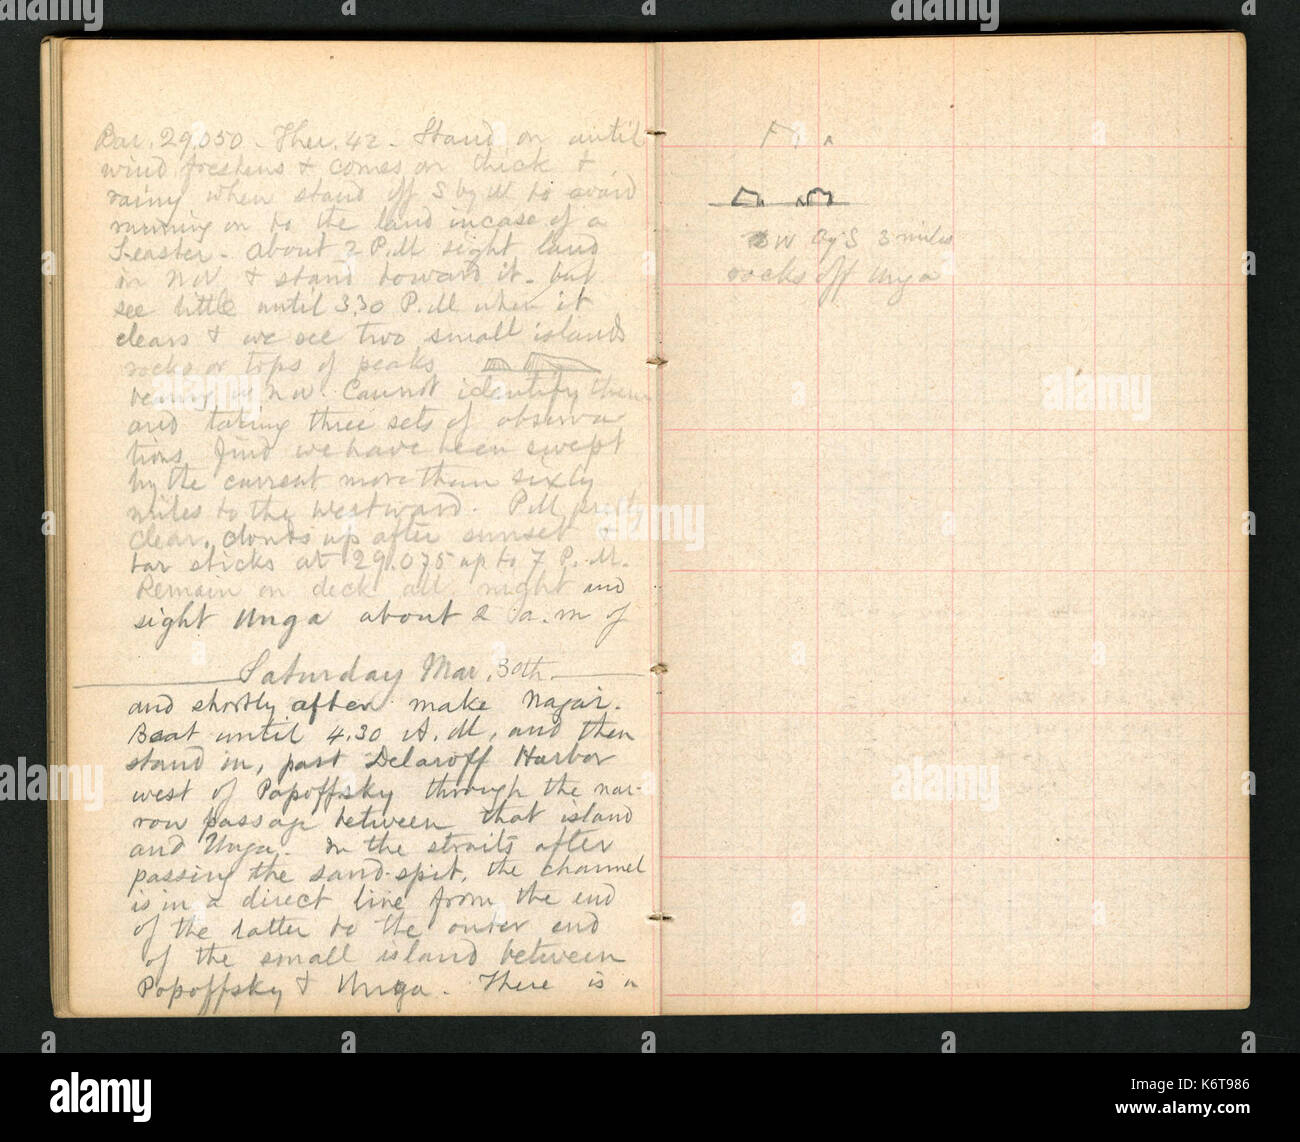 Bar. 29.050 - Ther. 42 - Stand on until
wind freshens & comes on thick &
rainy when stand off S by W to avoid
running on to the land in case of a
S.easter - About 2 P.M sight land
in NW & stand toward it - but
see little until 3.30 P.M when it
clears & we see two small islands
rocks or tops of peaks
bearing in NW. Cannot identify them
and taking three sets of observa
tions find we have been swept
by the current more than sixty
miles to the westward. P.M pretty
clear, clouds up after sunset &
bar sticks at 29.075 up to 7 P.M.
Remain on deck all night and
sight Unga about 2 a.m of
Saturday Mar. 30th.
and shortly after make Nagai.
Beat until 4.30 A.M, and then
stand in, past Delaroff Harbor
west of Popoffsky through the nar-
row passage between that island
and Unga. In the straits after
passing the sand-spit, the channel
is in a direct line from the end
of the latter to the outer end
of the small island between
Popoffsky & Unga. There is a
W by S 3 miles
rocks off Unga
alamy
alamy
alamy
alamy
alamy
alamy
alamy
alamy
K6T986
www.alamy.com